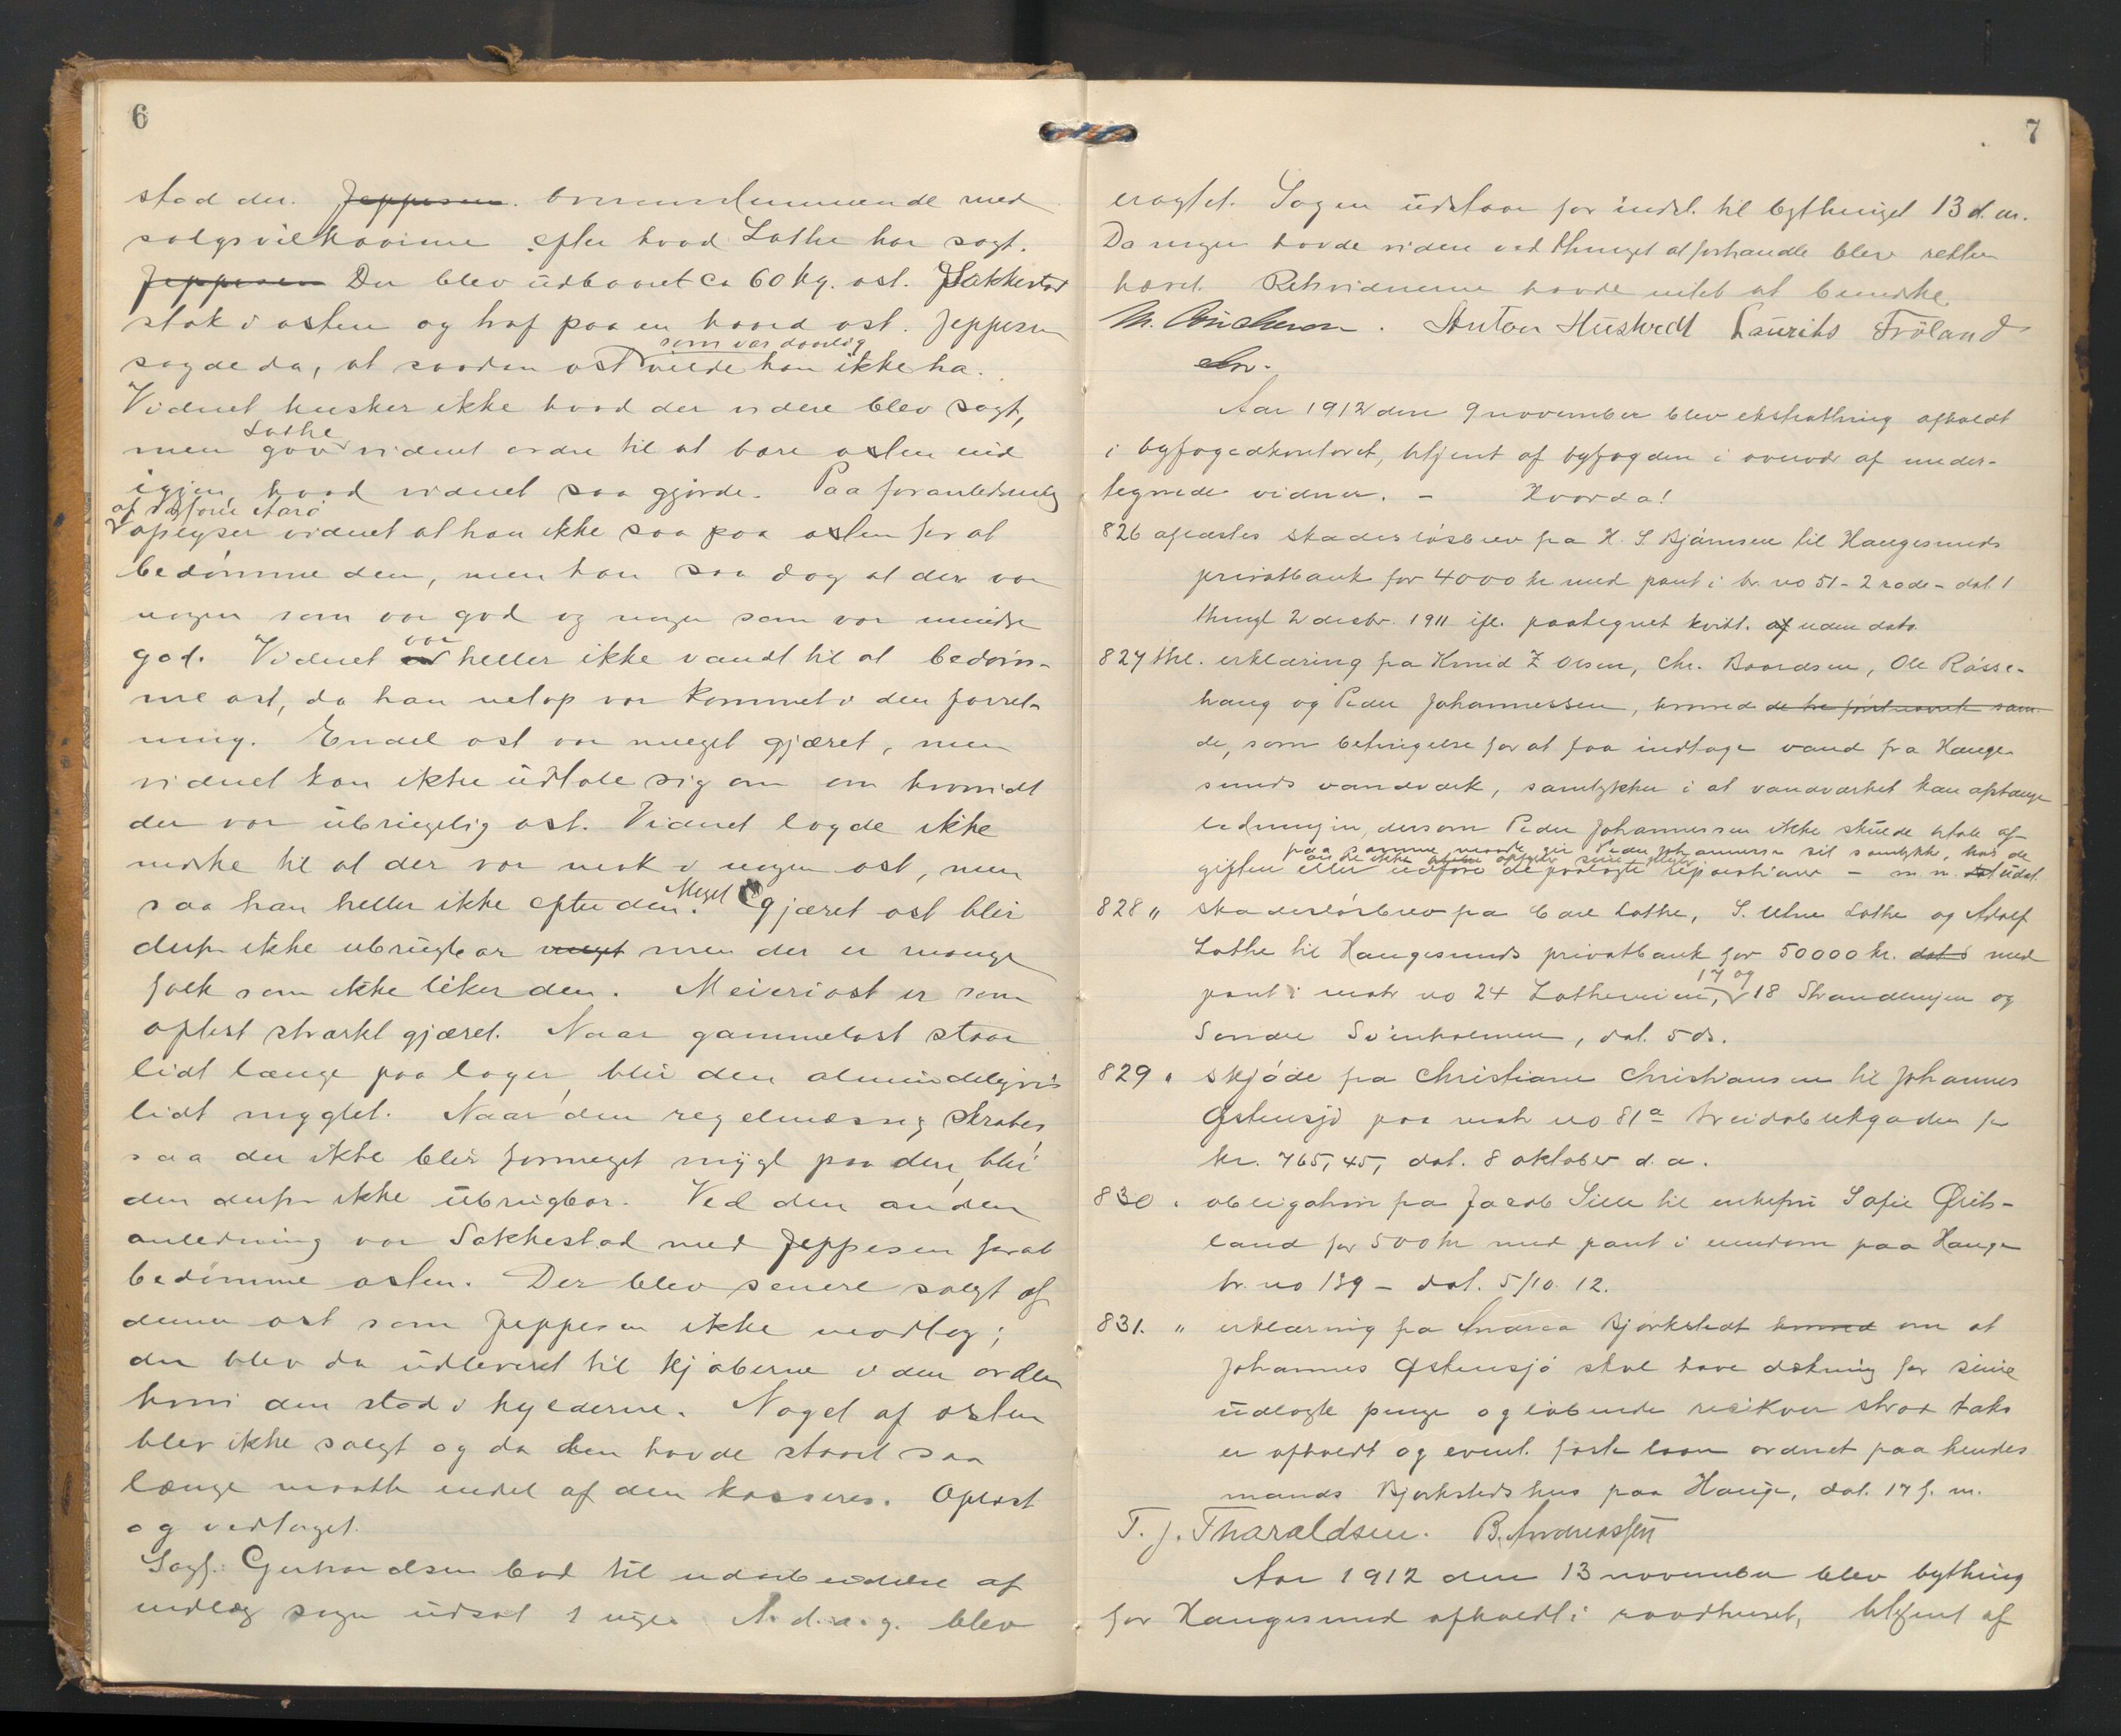 6
stod der. Jeppesen. Overensstemmende med
salgsvilkaarene efter hvad Lothe har sagt.
Jeppesen Der blev udbaaret ca 60 kg. ost. Sakkestad
stak i osten og traf paa en haard ost. Jeppesen
som var daarlig
sagde da, at saadan ost vilde han ikke ha.
Vidnet husker ikke hvad der videre blev sagt,
Lothe
men gav vidnet ordre til at bære osten ind
igjen, hvad vidnet saa gjorde. Paa foranledning
af
oplyser vidnet at han ikke saa paa osten for at
bedømme den, men han saa dog at der var
nogen som var god og nogen som var mindre
var
god. Vidnet er heller ikke vandt til at bedøm-
me ost, da han netop var kommet i den forret-
ning. Endel ost var meget gjæret, men
vidnet kan ikke udtale sig om om hvorvidt
der var ubrugelig ost. Vidnet lagde ikke
merke til at der var mak i nogen ost, men
saa han heller ikke efter den. Meget gjæret ost blir
derfor ikke ubrugbar meget men der er mange
folk som ikke liker den. Meieriost er som
oftest stærkt gjæret. Naar gammelost staar
lidt længe paa lager, blir den almindeligvis
lidt myglet. Naar den regelmæssig skrabes
saa der ikke blir formeget mygl paa den, blir
den derfor ikke ubrugbar. Ved den anden
anledning var Sakkestad med Jeppesen forat
bedømme osten. Der blev senere solgt af
denne ost som Jeppesen ikke modtog;
den blev da udleveret til kjøberne i den orden
hvori den stod i hylderne. Noget af osten
blev ikke solgt og da den havde staaet saa
længe maatte endel af den kasseres. Oplæst
og vedtaget.
Sagf. Gerhardsen bad til udarbeidelse af
indlæg sagen udsat 1 uge. N. d. a. g. blev
7
eragtet. Sagen udstaar for indst. til bythinget 13 d. m.
Da ingen havde videre ved thinget at forhandle blev retten
hævet. Retsvidnerne havde intet at bemerke.
Anton Hustvedt Laurits Fröland
Aar 1912 den 9 november blev ekstrathing afholdt
i byfogedkontoret, betjent af byfogden i overvær af under-
tegnede vidner. – Hvorda!
826 aflæstes skadesløsbrev fra H. S. Bjørnsen til Haugesunds
privatbank for 4000 kr med pant i br. no 51 - 2 rode - dat. 1
thingl 2 decbr. 1911 ifl. paategnet kvitt. af uden dato.
827 thl. erklæring fra Knud Z Olsen, Chr. Baardsen, Ole Røsse-
haug og Peder Johannessen, hvorved de tre førstnævnte sam-
de, som betingelse for at faa indtage vand fra Hauge-
sunds vandverk, samtykker i at vandverket kan afstænge
ledningen, dersom Peder Johannessen ikke skulde betale af-
paa samme maade gir Peder Johannessen sit samtykke, hvis de
andre ikke opfylder sine pligter
giften eller udføre de paalagte reparationer – m. m. dat udat.
828 " skadesløsbrev fra Carl Lothe, S. Utne Lothe og Adolf
Lothe til Haugesunds privatbank for 50000 kr. dat. med
17 og
pant i matr no 24 Lotheveien, 18 Strandveien og
Søndre Svinholmen, dat. 5 ds.
829 " skjøde fra Christiane Christiansen til Johannes
Østensjø paa matr no 81a Breidablikgaden for
kr. 765,45, dat. 8 oktober d. a.
830 " obligation fra Jacob Lille til enkefru Sofie Øritsland for 500 kr med pant i eiendom paa Hauge
br. no 139 – dat. 5/10. 12.
831. " erklæring fra Andrea Bjørkstedt hvorved om at
Johannes Østensjø skal have dækning for sine
udlagte penge og løbende vexler strax takst
er afholdt og event. første laan ordnet paa hendes
mands Bjørksteds hus paa Hauge, dat. 17 f. m.
T. J. Tharaldsen. B. Andreassen
Aar 1912 den 13 november blev bything
for Haugesund afholdt i raadhuset, betjent af